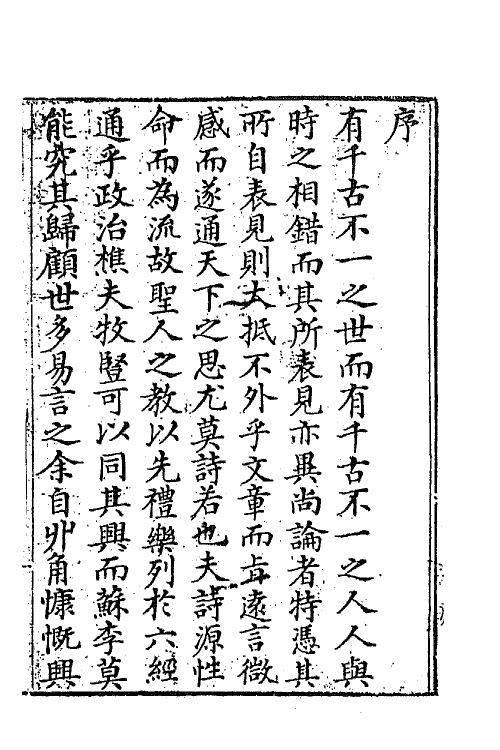 序
有千古不一之世而有千古不一之人人與
時之相錯而其所表見亦異尚論者特憑其
所自表見則大抵不外乎文章而旨遠言微
感而遂通天下之思尤莫詩若也夫詩源性
命而為流故聖人之教以先禮樂列於六經
通乎政治樵夫牧豎可以同其興而蘇李莫
能究其歸顧世多易言之余自丱角慷慨興